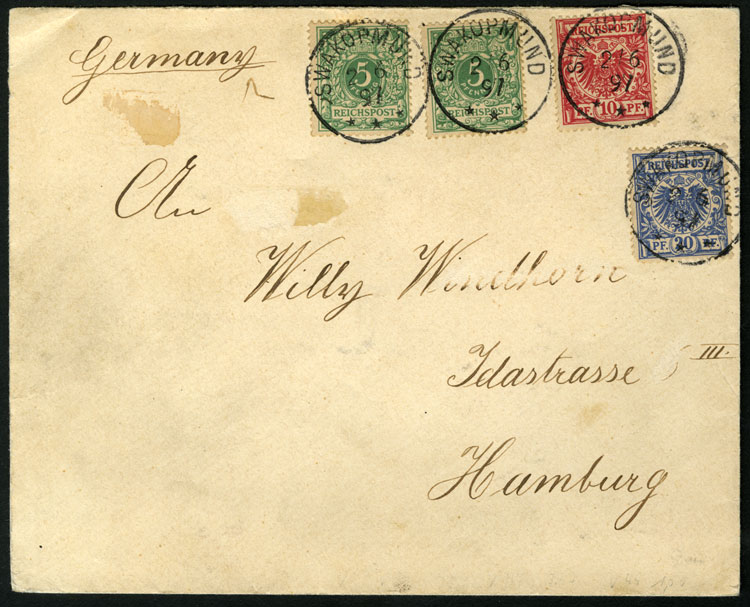 Germany
SWAKOPMUND
2 6
97
5
REICHSPOST
SWAKOPMUND
2 6
97
5
PFENNIG
REICHSPOST
SWAKOPMUND
2 6
97
REICHSPOST
PF. 10 PF.
SWAKOPMUND
REICHSPOST
PF. 20 PF.
An
Willy Windhorn
Idastrasse
III.
Hamburg